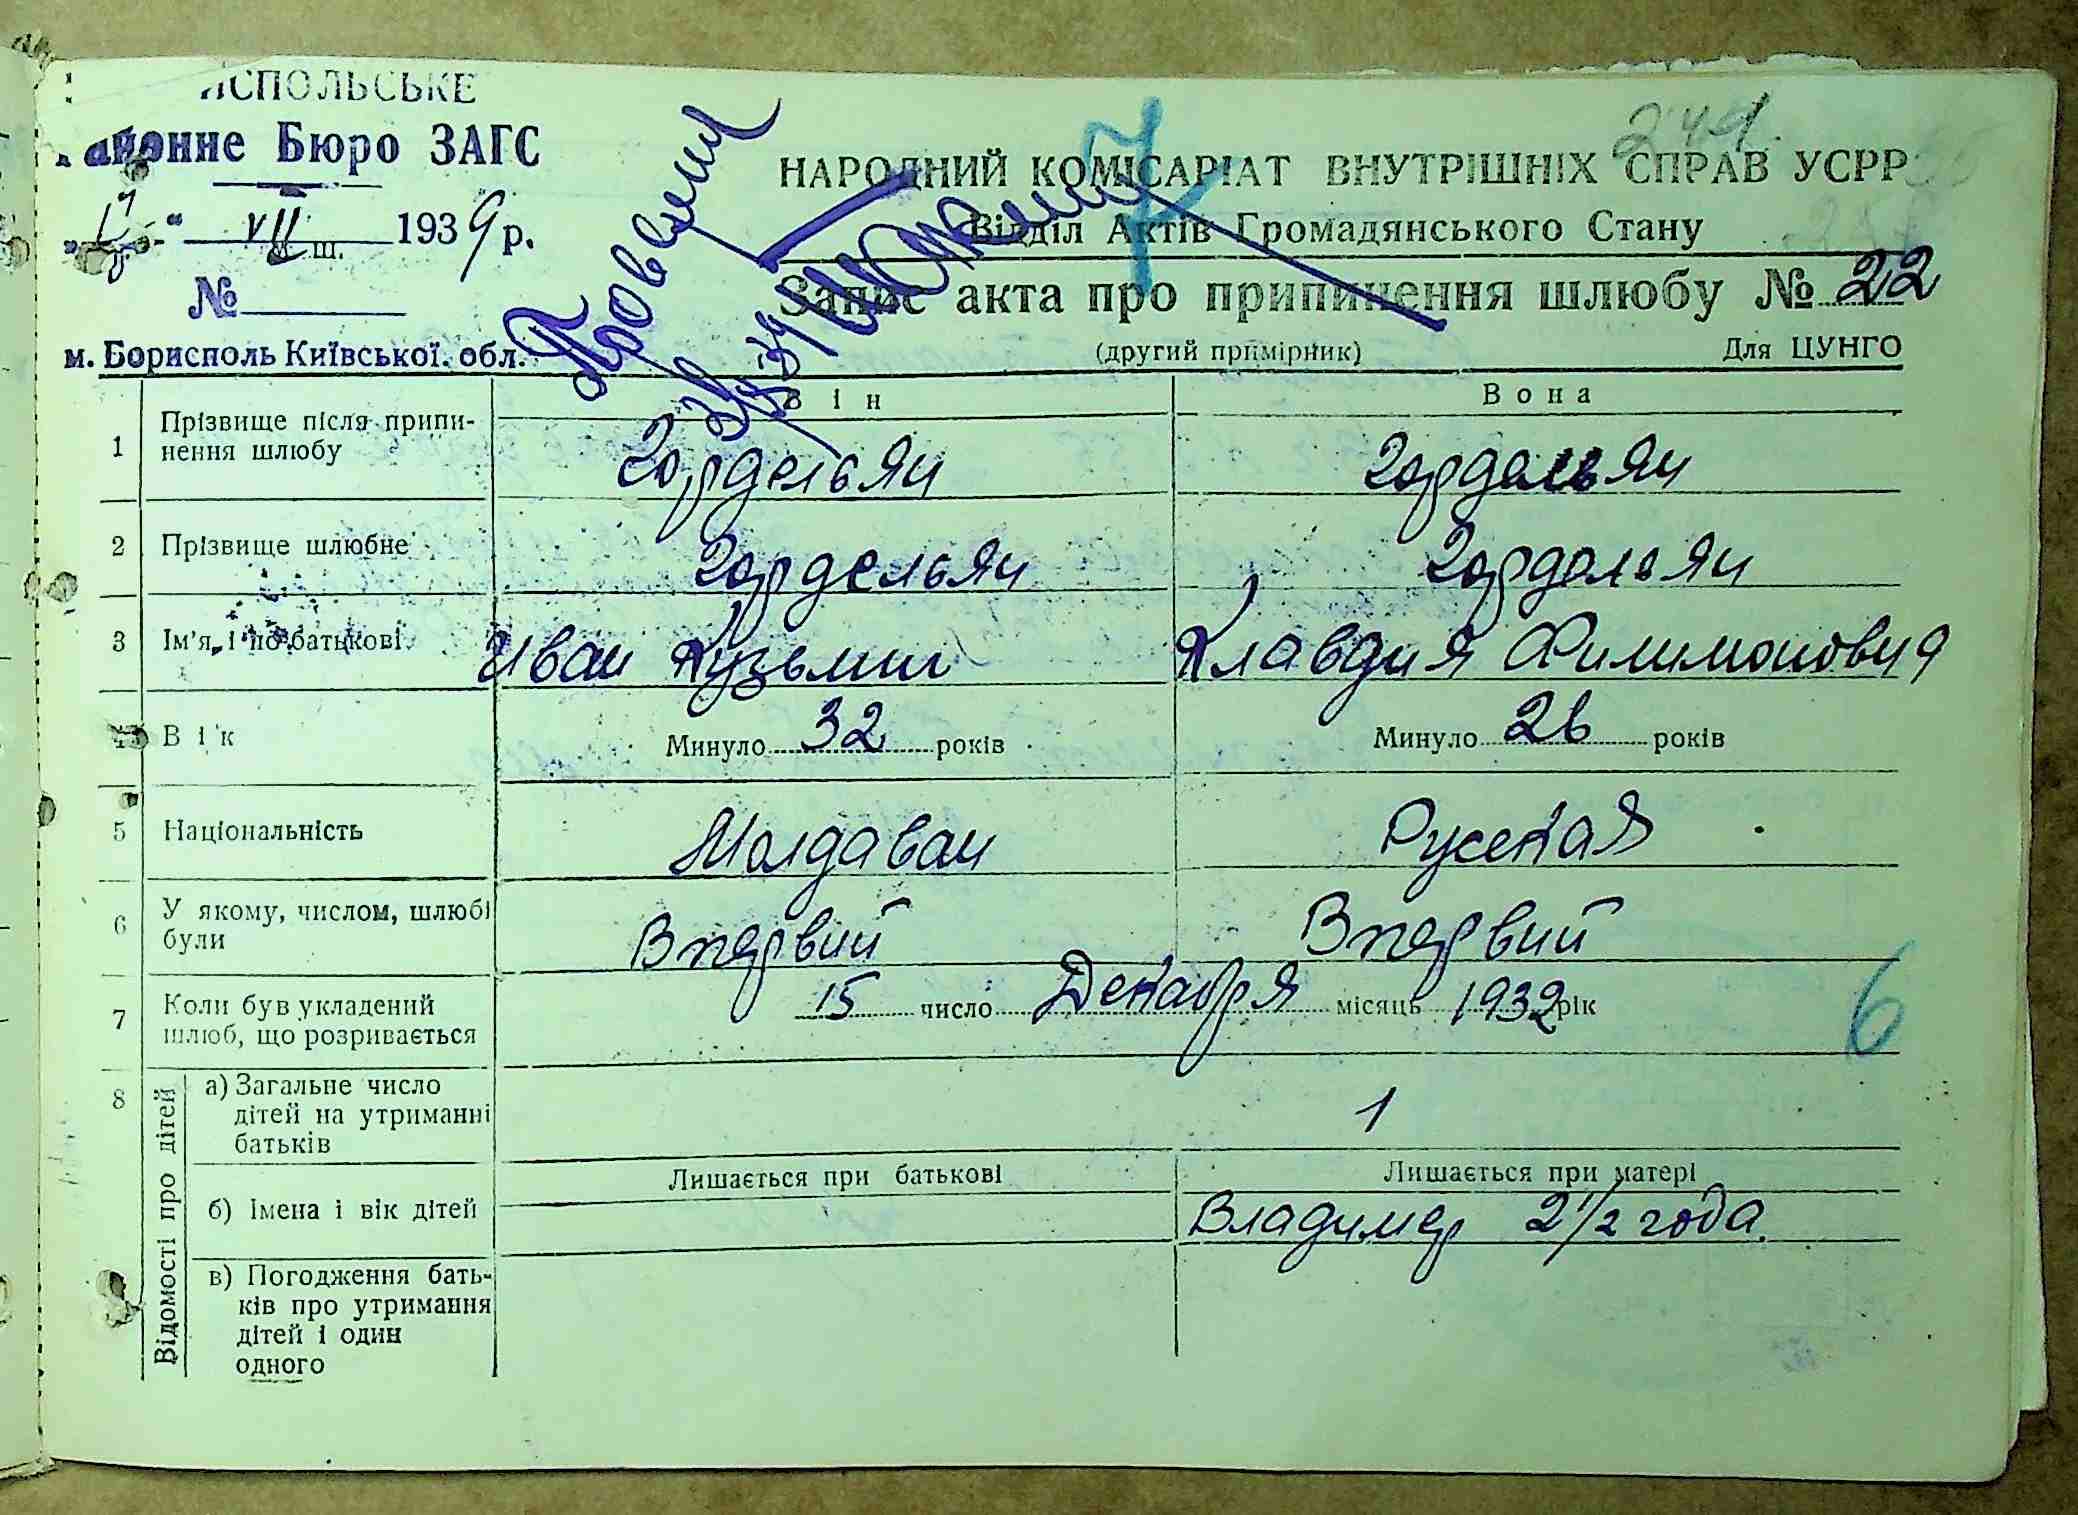 ИСПОЛЬСЬКЕ
Районне Бюро ЗАГС
"17" VII 1939 р.
№
м. Борисполь Київської обл.
244
НАРОДНИЙ КОМІСАРІАТ ВНУТРІШНІХ СПРАВ УСРР
Відділ Актів Громадянського Стану
Запис акта про припинення шлюбу № 22
(другий примірник)
Для ЦУНГО
7
Він
Вона
1 Прізвище після припи-
нення шлюбу
Гордельян
Гордельян
2 Прізвище шлюбне
Гордельян
Гордельян
3 Ім'я і по батькові
Иван Кузьмич
Клавдия Филимоновна
4 Вік
Минуло 32 років
Минуло 26 років
5 Національність
Молдаван
Руская
6 У якому, числом, шлюбі
були
Впервий
Впервий
7 Коли був укладений
шлюб, що розривається
15 число Декабря місяць 1932 рік
6
8 Відомості про дітей
а) Загальне число
дітей на утриманні
батьків
1
б) Імена і вік дітей
Лишається при батькові
Лишається при матері
Владимер 2 1/2 года.
в) Погодження бать-
ків про утримання
дітей і один
одного